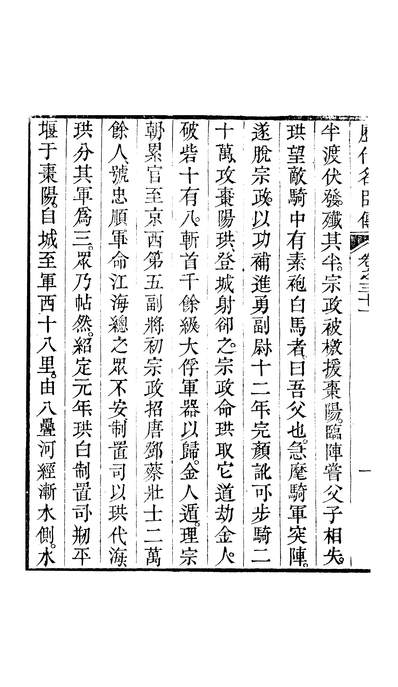 歷代名臣傳 卷之三十一 一
半渡伏發殲其半宗政被檄援棗陽臨陣嘗父子相失
珙望敵騎中有素袍白馬者曰吾父也急麾騎軍突陣
遂脫宗政以功補進勇副尉十二年完顏訛可步騎二
十萬攻棗陽珙登城射卻之宗政命珙取它道劫金人
破砦十有八斬首千餘級大俘軍器以歸金人遁理宗
朝累官至京西第五副將初宗政招唐鄧蔡壯士二萬
餘人號忠順軍命江海總之眾不安制置司以珙代海
珙分其軍爲三眾乃帖然紹定元年珙白制置司刱平
堰于棗陽自城至軍西十八里由八疊河經漸水側水